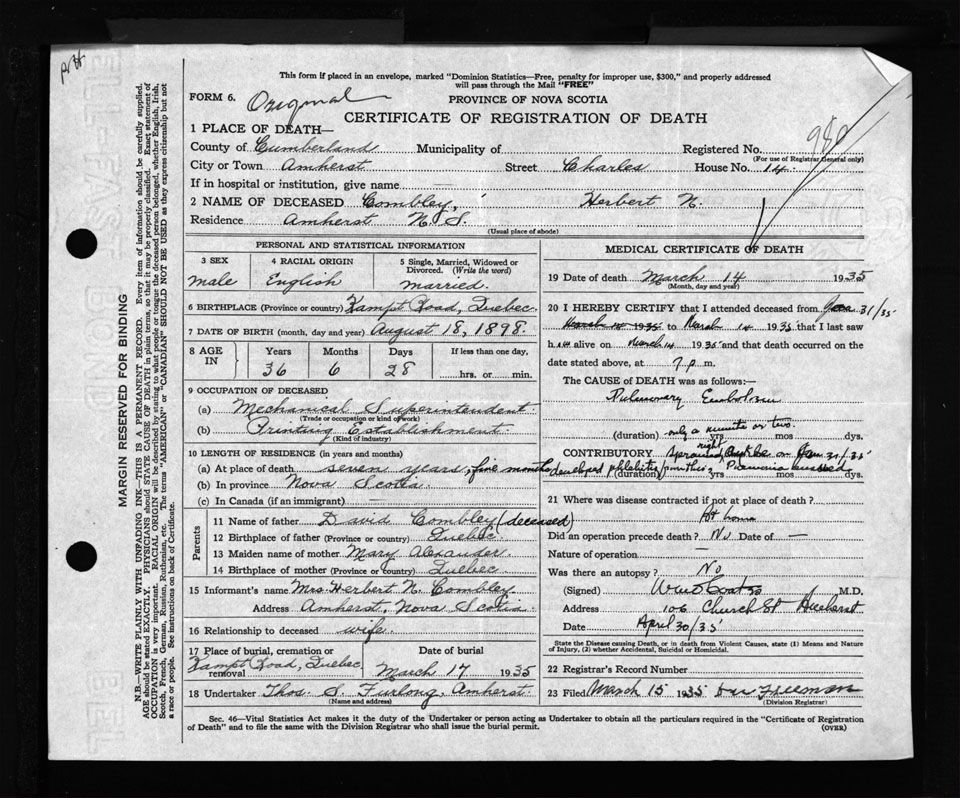 This form if placed in an envelope, marked "Dominion Statistics—Free, penalty for improper use, $300," and properly addressed
will pass through the Mail "FREE"
FORM 6. Original
PROVINCE OF NOVA SCOTIA
CERTIFICATE OF REGISTRATION OF DEATH
1 PLACE OF DEATH—
County of Cumberland Municipality of Registered No.
(For use of Registrar General only)
City or Town Amherst Street Charles House No. 14
If in hospital or institution, give name
2 NAME OF DECEASED Combley, Herbert N.
Residence Amherst N. S.
(Usual place of abode)
PERSONAL AND STATISTICAL INFORMATION
3 SEX 4 RACIAL ORIGIN 5 Single, Married, Widowed or Divorced. (Write the word)
male English married.
6 BIRTHPLACE (Province or country) Kempt Road, Quebec
7 DATE OF BIRTH (month, day and year) August 18, 1898.
8 AGE IN Years Months Days If less than one day,
36 6 28 hrs. or min.
9 OCCUPATION OF DECEASED
(a) Mechanical Superintendent
(Trade or occupation or kind of work)
(b) Printing Establishment
(Kind of industry)
10 LENGTH OF RESIDENCE (in years and months)
(a) At place of death seven years, five months
(b) In province Nova Scotia
(c) In Canada (if an immigrant)
Parents
11 Name of father David Combley (deceased)
12 Birthplace of father (Province or country) Quebec
13 Maiden name of mother Mary Alexander
14 Birthplace of mother (Province or country) Quebec
15 Informant's name Mrs Herbert N. Combley
Address Amherst, Nova Scotia
16 Relationship to deceased wife
17 Place of burial, cremation or removal Date of burial
Kempt Road, Quebec March 17 1935
18 Undertaker Thos. S. Furlong, Amherst
(Name and address)
MEDICAL CERTIFICATE OF DEATH
19 Date of death March 14 1935
(Month, day and year)
20 I HEREBY CERTIFY that I attended deceased from Jan 31/35
1935 to March 14 1935 that I last saw
h alive on March 14 1935 and that death occurred on the
date stated above, at 7 p m.
The CAUSE OF DEATH was as follows:—
Pulmonary Embolism
(duration) only a minute or two. yrs mos dys.
CONTRIBUTORY Sprained right ankle on Jan 31/35
developed phlebitis from this (duration) yrs mos dys.
21 Where was disease contracted if not at place of death?
At home
Did an operation precede death? No Date of —
Nature of operation —
Was there an autopsy? No
(Signed) M.D.
Address 106 Church St Amherst
Date April 30/35
State the Disease causing Death, or in death from Violent Causes, state (1) Means and Nature
of Injury, (2) whether Accidental, Suicidal or Homicidal.
22 Registrar's Record Number
23 Filed March 15 1935 Freeman
(Division Registrar)
Sec. 46—Vital Statistics Act makes it the duty of the Undertaker or person acting as Undertaker to obtain all the particulars required in the "Certificate of Registration
of Death" and to file the same with the Division Registrar who shall issue the burial permit. (OVER)
MARGIN RESERVED FOR BINDING
N.B.—WRITE PLAINLY WITH UNFADING INK—THIS IS A PERMANENT RECORD. Every item of information should be carefully supplied.
AGE should be stated EXACTLY. PHYSICIANS should STATE CAUSE OF DEATH in plain terms, so that it may be properly classified. Exact statement of
OCCUPATION is very important. RACIAL ORIGIN will be described by stating to what people or tongue the deceased person belonged, whether English, Irish,
Scotch, French, German, Russian, Ruthenian, etc. The terms "AMERICAN" or "CANADIAN" SHOULD NOT BE USED as they express citizenship but not
a race or people. See instructions on back of Certificate.